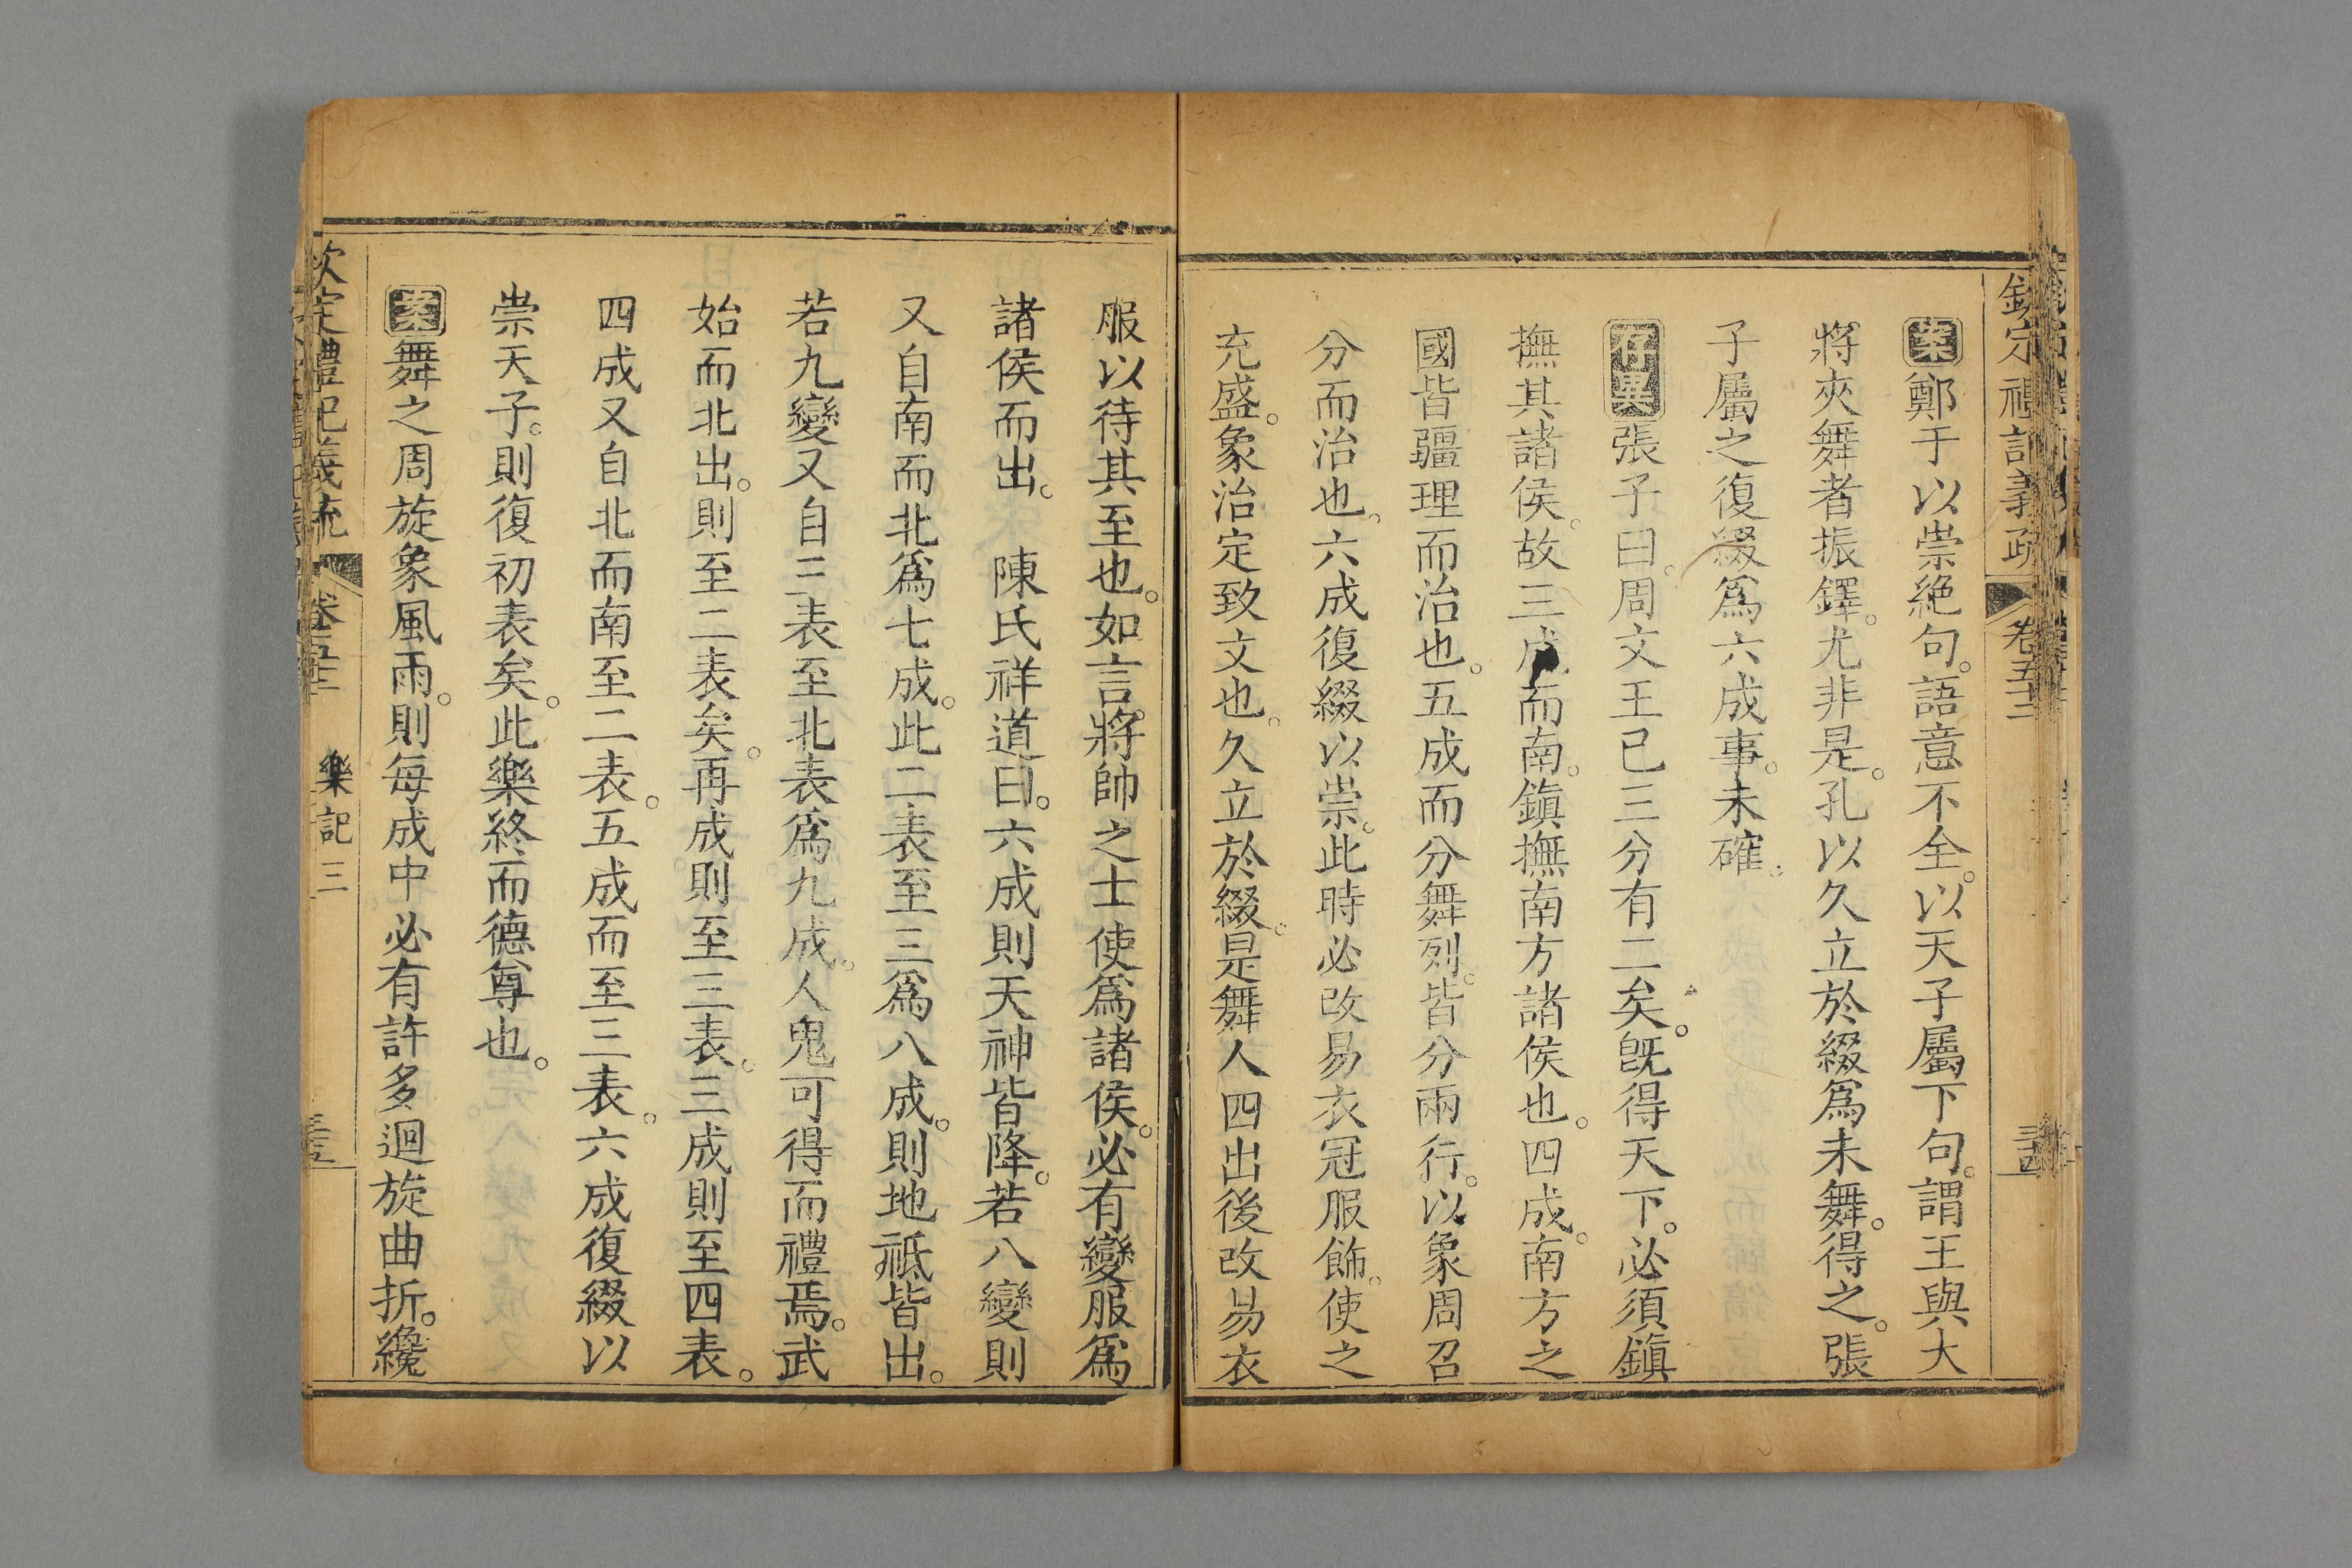 欽定禮記義疏 卷五十三
案鄭于以崇絶句。語意不全。以天子屬下句。謂王與大
將夾舞者振鐸。尤非是。孔以久立於綴爲未舞。得之。張
子屬之復綴爲六成事。未確。
存異張子曰。周文王已三分有二矣。旣得天下。必須鎭
撫其諸侯。故三成而南。鎭撫南方諸侯也。四成。南方之
國皆疆理而治也。五成而分舞列。皆分兩行。以象周召
分而治也。六成復綴以崇。此時必改易衣冠服飾。使之
充盛。象治定致文也。久立於綴。是舞人四出後改易衣
服以待其至也。如言將帥之士使爲諸侯。必有變服爲
諸侯而出。 陳氏祥道曰。六成則天神皆降。若八變則
又自南而北爲七成。此二表至三爲八成。則地祗皆出。
若九變又自三表至北表爲九成。人鬼可得而禮焉。武
始而北出。則至二表矣。再成則至三表。三成則至四表。
四成又自北而南至二表。五成而至三表。六成復綴以
崇天子。則復初表矣。此樂終而德尊也。
案舞之周旋象風雨。則每成中必有許多迴旋曲折。纔
欽定禮記義疏 卷五十三 樂記三